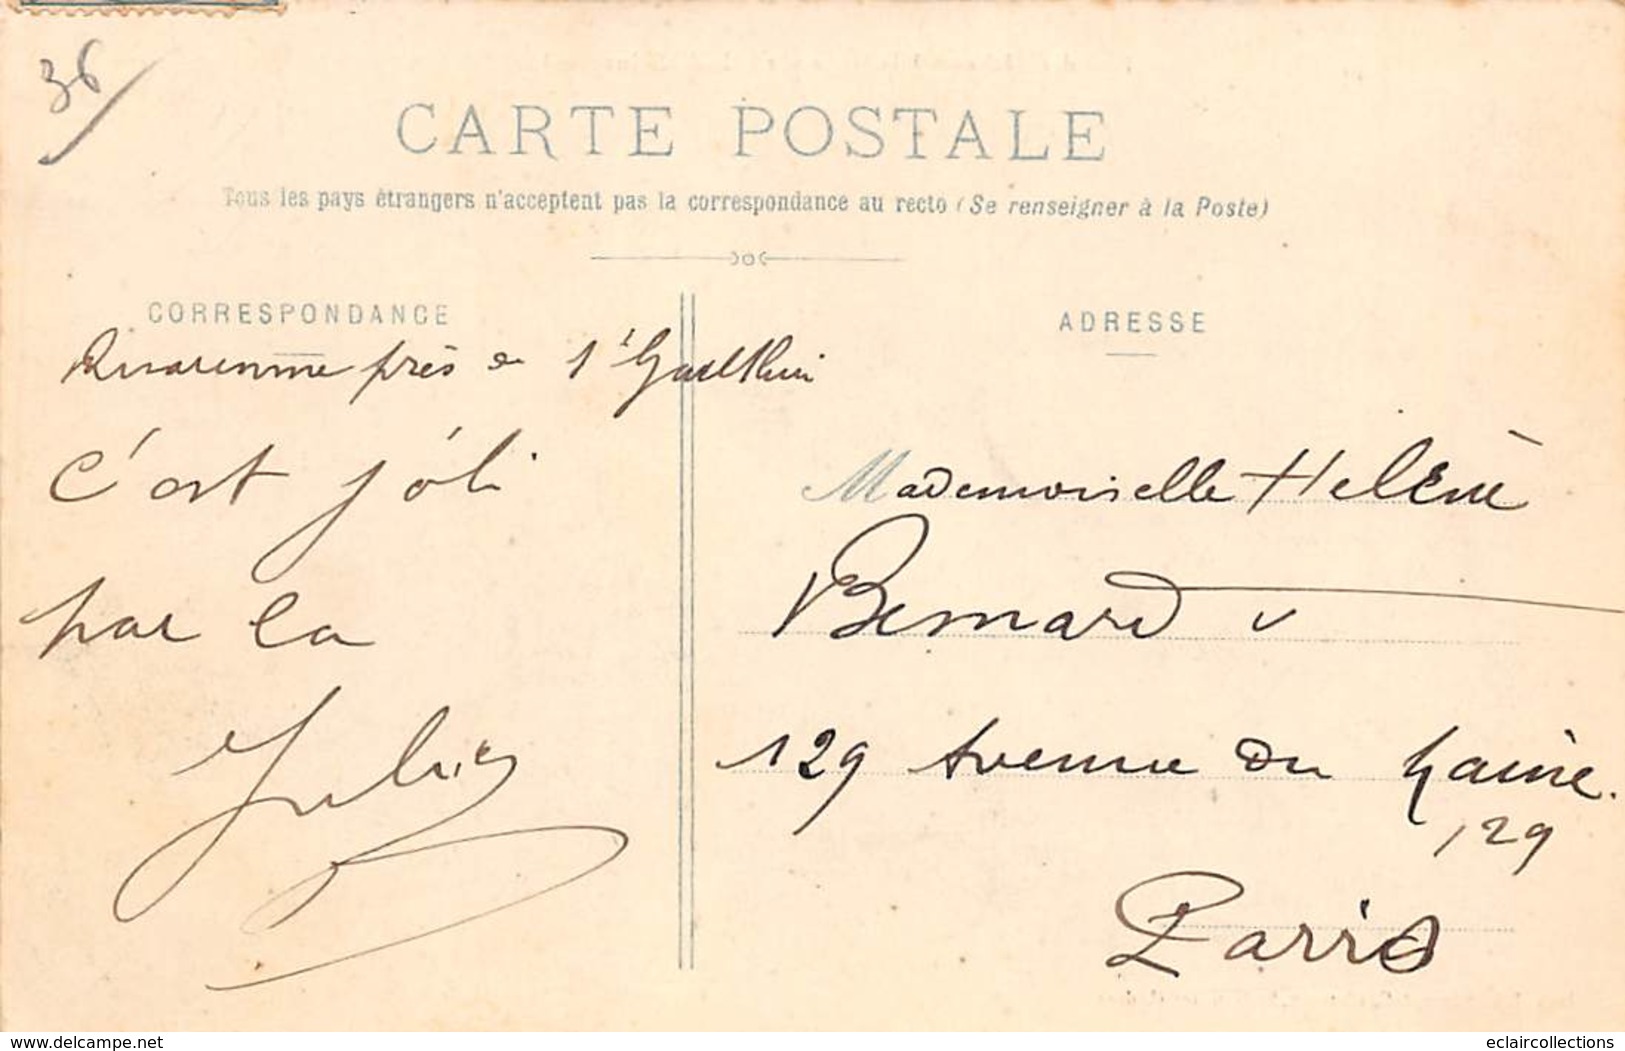 36
CARTE POSTALE
Tous les pays étrangers n'acceptent pas la correspondance au recto (Se renseigner à la Poste)
CORRESPONDANCE
près de St Gaulthier
c'est joli
par la
Julien
ADRESSE
Mademoiselle Helène
Bernard
129 Avenue du Maine.
129
Paris
www.delcampe.net
eclaircollections